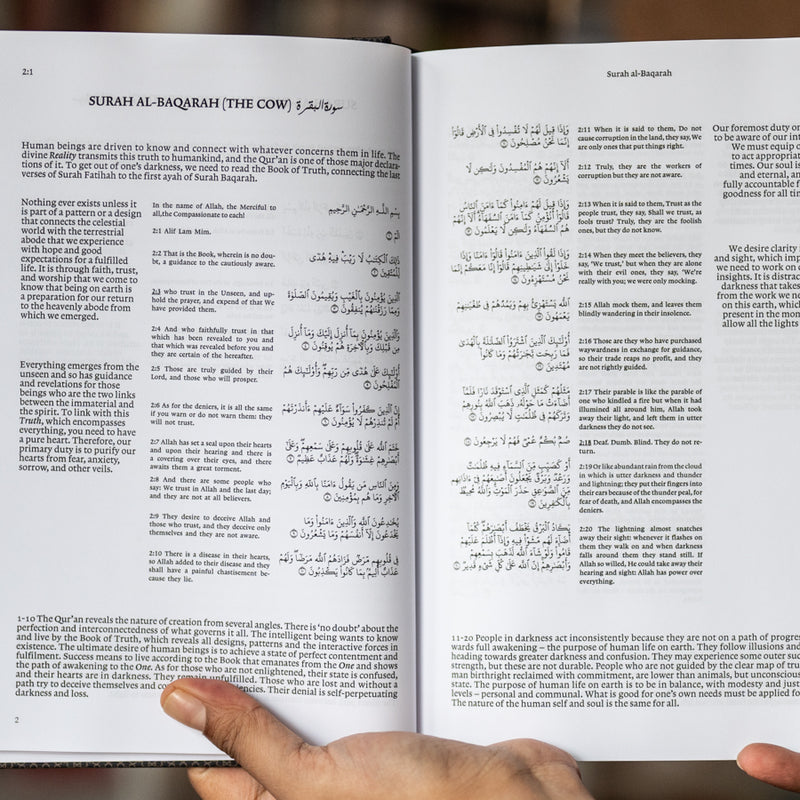 2:1
SURAH AL-BAQARAH (THE COW) سورة البقرة
Human beings are driven to know and connect with whatever concerns them in life. The
divine Reality transmits this truth to humankind, and the Qur'an is one of those major declara-
tions of it. To get out of one's darkness, we need to read the Book of Truth, connecting the last
verses of Surah Fatihah to the first ayah of Surah Baqarah.
Nothing ever exists unless it
is part of a pattern or a design
that connects the celestial
world with the terrestrial
abode that we experience
with hope and good
expectations for a fulfilled
life. It is through faith, trust,
and worship that we come to
know that being on earth is
a preparation for our return
to the heavenly abode from
which we emerged.
Everything emerges from the
unseen and so has guidance
and revelations for those
beings who are the two links
between the immaterial and
the spirit. To link with this
Truth, which encompasses
everything, you need to have
a pure heart. Therefore, our
primary duty is to purify our
hearts from fear, anxiety,
sorrow, and other veils.
In the name of Allah, the Merciful to
all,the Compassionate to each!
2:1 Alif Lam Mim.
2:2 That is the Book, wherein is no dou-
bt, a guidance to the cautiously aware.
2:3 who trust in the Unseen, and up-
hold the prayer, and expend of that We
have provided them.
2:4 And who faithfully trust in that
which has been revealed to you and
that which was revealed before you and
they are certain of the hereafter.
2:5 Those are truly guided by their
Lord, and those who will prosper.
2:6 As for the deniers, it is all the same
if you warn or do not warn them; they
will not trust.
2:7 Allah has set a seal upon their hearts
and upon their hearing and there is
a covering over their eyes, and there
awaits them a great torment.
2:8 And there are some people who
say: We trust in Allah and the last day;
and they are not at all believers.
2:9 They desire to deceive Allah and
those who trust, and they deceive only
themselves and they are not aware.
2:10 There is a disease in their hearts,
so Allah added to their disease and they
shall have a painful chastisement be-
cause they lie.
بِسْمِ اللَّهِ الرَّحْمَٰنِ الرَّحِيمِ
الٓمٓ ①
ذَٰلِكَ الْكِتَابُ لَا رَيْبَ فِيهِ هُدًى
لِّلْمُتَّقِينَ ②
الَّذِينَ يُؤْمِنُونَ بِالْغَيْبِ وَيُقِيمُونَ الصَّلَوٰةَ
وَمِمَّا رَزَقْنَٰهُمْ يُنفِقُونَ ③
وَالَّذِينَ يُؤْمِنُونَ بِمَآ أُنزِلَ إِلَيْكَ وَمَآ أُنزِلَ
مِن قَبْلِكَ وَبِالْءَاخِرَةِ هُمْ يُوقِنُونَ ④
أُوْلَٰٓئِكَ عَلَىٰ هُدًى مِّن رَّبِّهِمْ وَأُوْلَٰٓئِكَ هُمُ
الْمُفْلِحُونَ ⑤
إِنَّ الَّذِينَ كَفَرُوا۟ سَوَآءٌ عَلَيْهِمْ ءَأَنذَرْتَهُمْ
أَمْ لَمْ تُنذِرْهُمْ لَا يُؤْمِنُونَ ⑥
خَتَمَ اللَّهُ عَلَىٰ قُلُوبِهِمْ وَعَلَىٰ سَمْعِهِمْ وَعَلَىٰٓ
أَبْصَٰرِهِمْ غِشَٰوَةٌ وَلَهُمْ عَذَابٌ عَظِيمٌ ⑦
وَمِنَ النَّاسِ مَن يَقُولُ ءَامَنَّا بِاللَّهِ وَبِالْيَوْمِ
الْءَاخِرِ وَمَا هُم بِمُؤْمِنِينَ ⑧
يُخَٰدِعُونَ اللَّهَ وَالَّذِينَ ءَامَنُوا۟ وَمَا
يَخْدَعُونَ إِلَّآ أَنفُسَهُمْ وَمَا يَشْعُرُونَ ⑨
فِى قُلُوبِهِم مَّرَضٌ فَزَادَهُمُ اللَّهُ مَرَضًا وَلَهُمْ
عَذَابٌ أَلِيمٌ بِمَا كَانُوا۟ يَكْذِبُونَ ⑩
1-10 The Qur'an reveals the nature of creation from several angles. There is 'no doubt' about the
perfection and interconnectedness of what governs it all. The intelligent being wants to know
and live by the Book of Truth, which reveals all designs, patterns and the interactive forces in
existence. The ultimate desire of human beings is to achieve a state of perfect contentment and
fulfilment. Success means to live according to the Book that emanates from the One and shows
the path of awakening to the One. As for those who are not enlightened, their state is confused,
and their hearts are in darkness. They remain unfulfilled. Those who are lost and without a
path try to deceive themselves and encies. Their denial is self-perpetuating
darkness and loss.
2
Surah al-Baqarah
وَإِذَا قِيلَ لَهُمْ لَا تُفْسِدُوا۟ فِى الْأَرْضِ قَالُوٓا۟
إِنَّمَا نَحْنُ مُصْلِحُونَ ⑪
أَلَآ إِنَّهُمْ هُمُ الْمُفْسِدُونَ وَلَٰكِن لَّا
يَشْعُرُونَ ⑫
وَإِذَا قِيلَ لَهُمْ ءَامِنُوا۟ كَمَآ ءَامَنَ النَّاسُ
قَالُوٓا۟ أَنُؤْمِنُ كَمَآ ءَامَنَ السُّفَهَآءُ أَلَآ إِنَّهُمْ
هُمُ السُّفَهَآءُ وَلَٰكِن لَّا يَعْلَمُونَ ⑬
وَإِذَا لَقُوا۟ الَّذِينَ ءَامَنُوا۟ قَالُوٓا۟ ءَامَنَّا وَإِذَا
خَلَوْا۟ إِلَىٰ شَيَٰطِينِهِمْ قَالُوٓا۟ إِنَّا مَعَكُمْ إِنَّمَا
نَحْنُ مُسْتَهْزِءُونَ ⑭
اللَّهُ يَسْتَهْزِئُ بِهِمْ وَيَمُدُّهُمْ فِى طُغْيَٰنِهِمْ
يَعْمَهُونَ ⑮
أُوْلَٰٓئِكَ الَّذِينَ اشْتَرَوُا۟ الضَّلَٰلَةَ بِالْهُدَىٰ
فَمَا رَبِحَت تِّجَٰرَتُهُمْ وَمَا كَانُوا۟
مُهْتَدِينَ ⑯
مَثَلُهُمْ كَمَثَلِ الَّذِى اسْتَوْقَدَ نَارًا فَلَمَّآ
أَضَآءَتْ مَا حَوْلَهُۥ ذَهَبَ اللَّهُ بِنُورِهِمْ
وَتَرَكَهُمْ فِى ظُلُمَٰتٍ لَّا يُبْصِرُونَ ⑰
صُمٌّۢ بُكْمٌ عُمْىٌ فَهُمْ لَا يَرْجِعُونَ ⑱
أَوْ كَصَيِّبٍ مِّنَ السَّمَآءِ فِيهِ ظُلُمَٰتٌ
وَرَعْدٌ وَبَرْقٌ يَجْعَلُونَ أَصَٰبِعَهُمْ فِىٓ ءَاذَانِهِم
مِّنَ الصَّوَٰعِقِ حَذَرَ الْمَوْتِ وَاللَّهُ مُحِيطٌۢ
بِالْكَٰفِرِينَ ⑲
يَكَادُ الْبَرْقُ يَخْطَفُ أَبْصَٰرَهُمْ كُلَّمَآ
أَضَآءَ لَهُم مَّشَوْا۟ فِيهِ وَإِذَآ أَظْلَمَ عَلَيْهِمْ
قَامُوا۟ وَلَوْ شَآءَ اللَّهُ لَذَهَبَ بِسَمْعِهِمْ
وَأَبْصَٰرِهِمْ إِنَّ اللَّهَ عَلَىٰ كُلِّ شَىْءٍ قَدِيرٌ ⑳
2:11 When it is said to them, Do not
cause corruption in the land, they say, We
are only ones that put things right.
2:12 Truly, they are the workers of
corruption but they are not aware.
2:13 When it is said to them, Trust as the
people trust, they say, Shall we trust, as
fools trust? Truly, they are the foolish
ones, but they do not know.
2:14 When they meet the believers, they
say, 'We trust,' but when they are alone
with their evil ones, they say, 'We're
really with you; we were only mocking.
2:15 Allah mock them, and leaves them
blindly wandering in their insolence.
2:16 Those are they who have purchased
waywardness in exchange for guidance,
so their trade reaps no profit, and they
are not rightly guided.
2:17 Their parable is like the parable of
one who kindled a fire but when it had
illumined all around him, Allah took
away their light, and left them in utter
darkness they do not see.
2:18 Deaf. Dumb. Blind. They do not re-
turn.
2:19 Or like abundant rain from the cloud
in which is utter darkness and thunder
and lightning; they put their fingers into
their ears because of the thunder peal, for
fear of death, and Allah encompasses the
deniers.
2:20 The lightning almost snatches
away their sight; whenever it flashes on
them they walk on and when darkness
falls around them they stand still. If
Allah so willed, He could take away their
hearing and sight: Allah has power over
everything.
Our foremost duty on
to be aware of our int
We must equip o
to act appropriat
times. Our soul is
and eternal, an
fully accountable f
goodness for all tim
We desire clarity i
and sight, which imp
we need to work on o
insights. It is distrac
darkness that takes
from the work we n
on this earth, which
present in the mon
allow all the lights
11-20 People in darkness act inconsistently because they are not on a path of progres
wards full awakening – the purpose of human life on earth. They follow illusions and
heading towards greater darkness and confusion. They may experience some outer suc
strength, but these are not durable. People who are not guided by the clear map of tru
man birthright reclaimed with commitment, are lower than animals, but unconscious
state. The purpose of human life on earth is to be in balance, with modesty and just
levels – personal and communal. What is good for one's own needs must be applied fo
The nature of the human self and soul is the same for all.